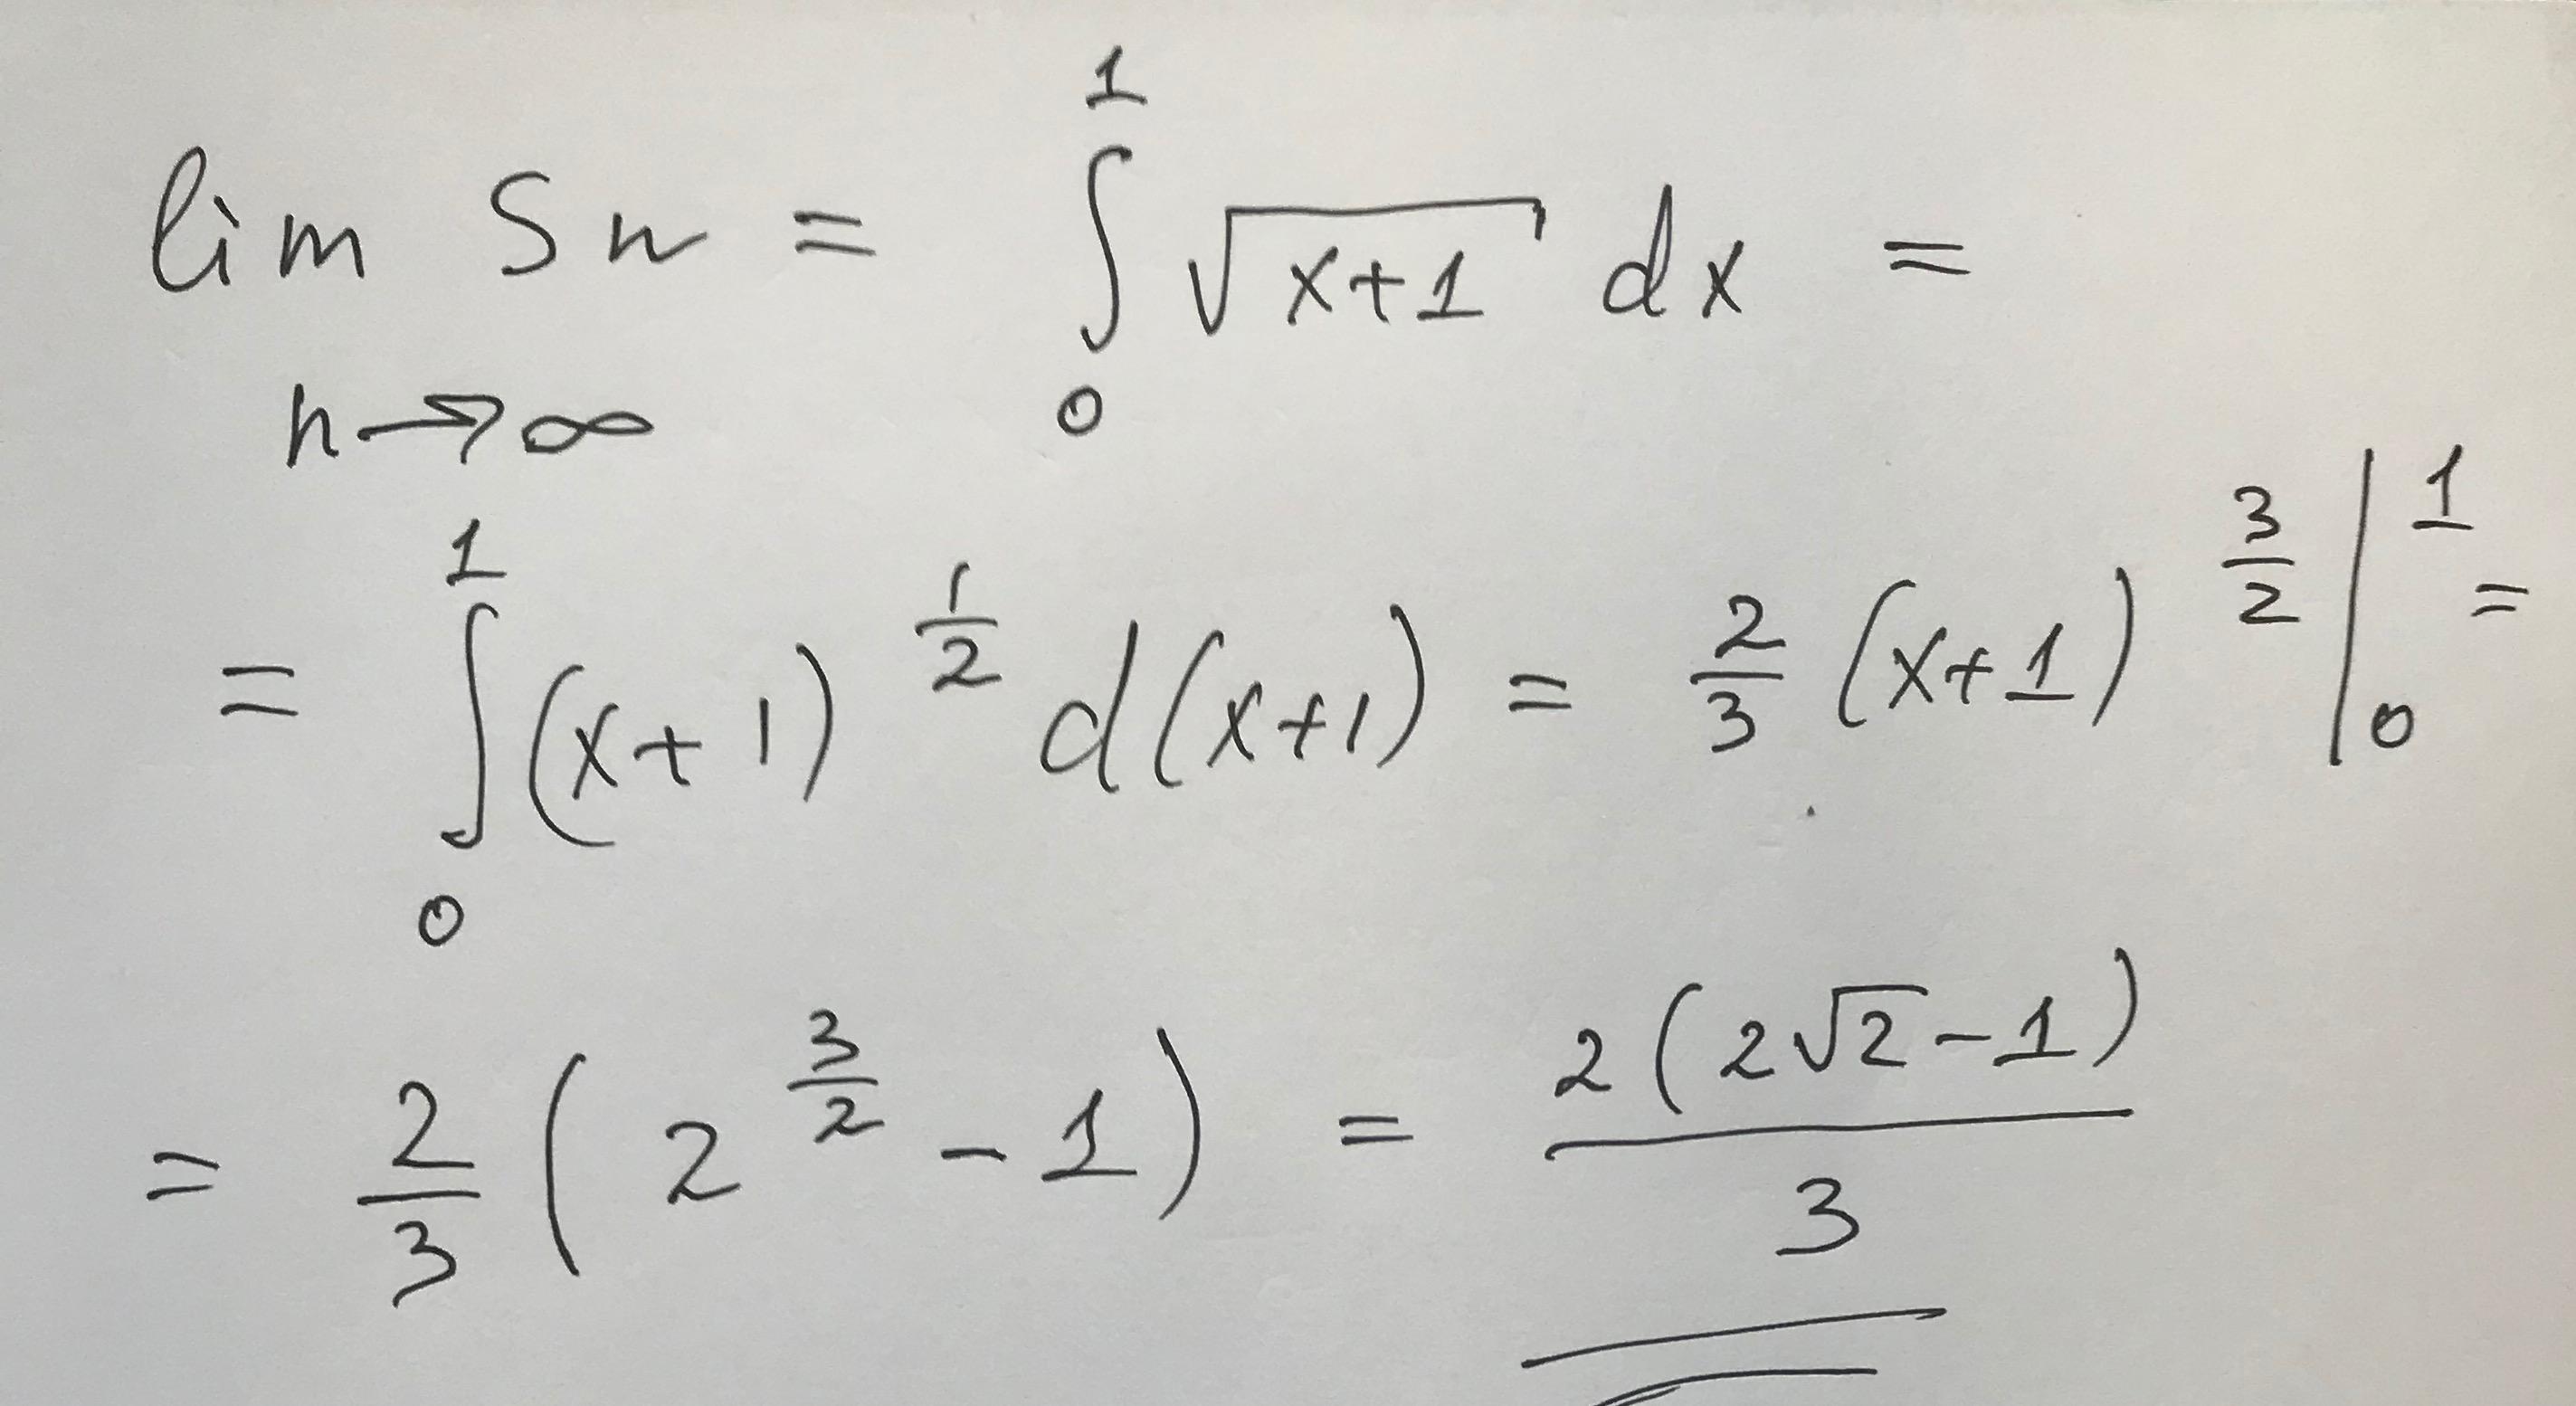 lim Sn = ∫₀¹ √(x+1) dx =
n→∞
= ∫₀¹ (x+1)^(1/2) d(x+1) = 2/3 (x+1)^(3/2) |₀¹ =
= 2/3 (2^(3/2) - 1) = 2(2√2-1)/3